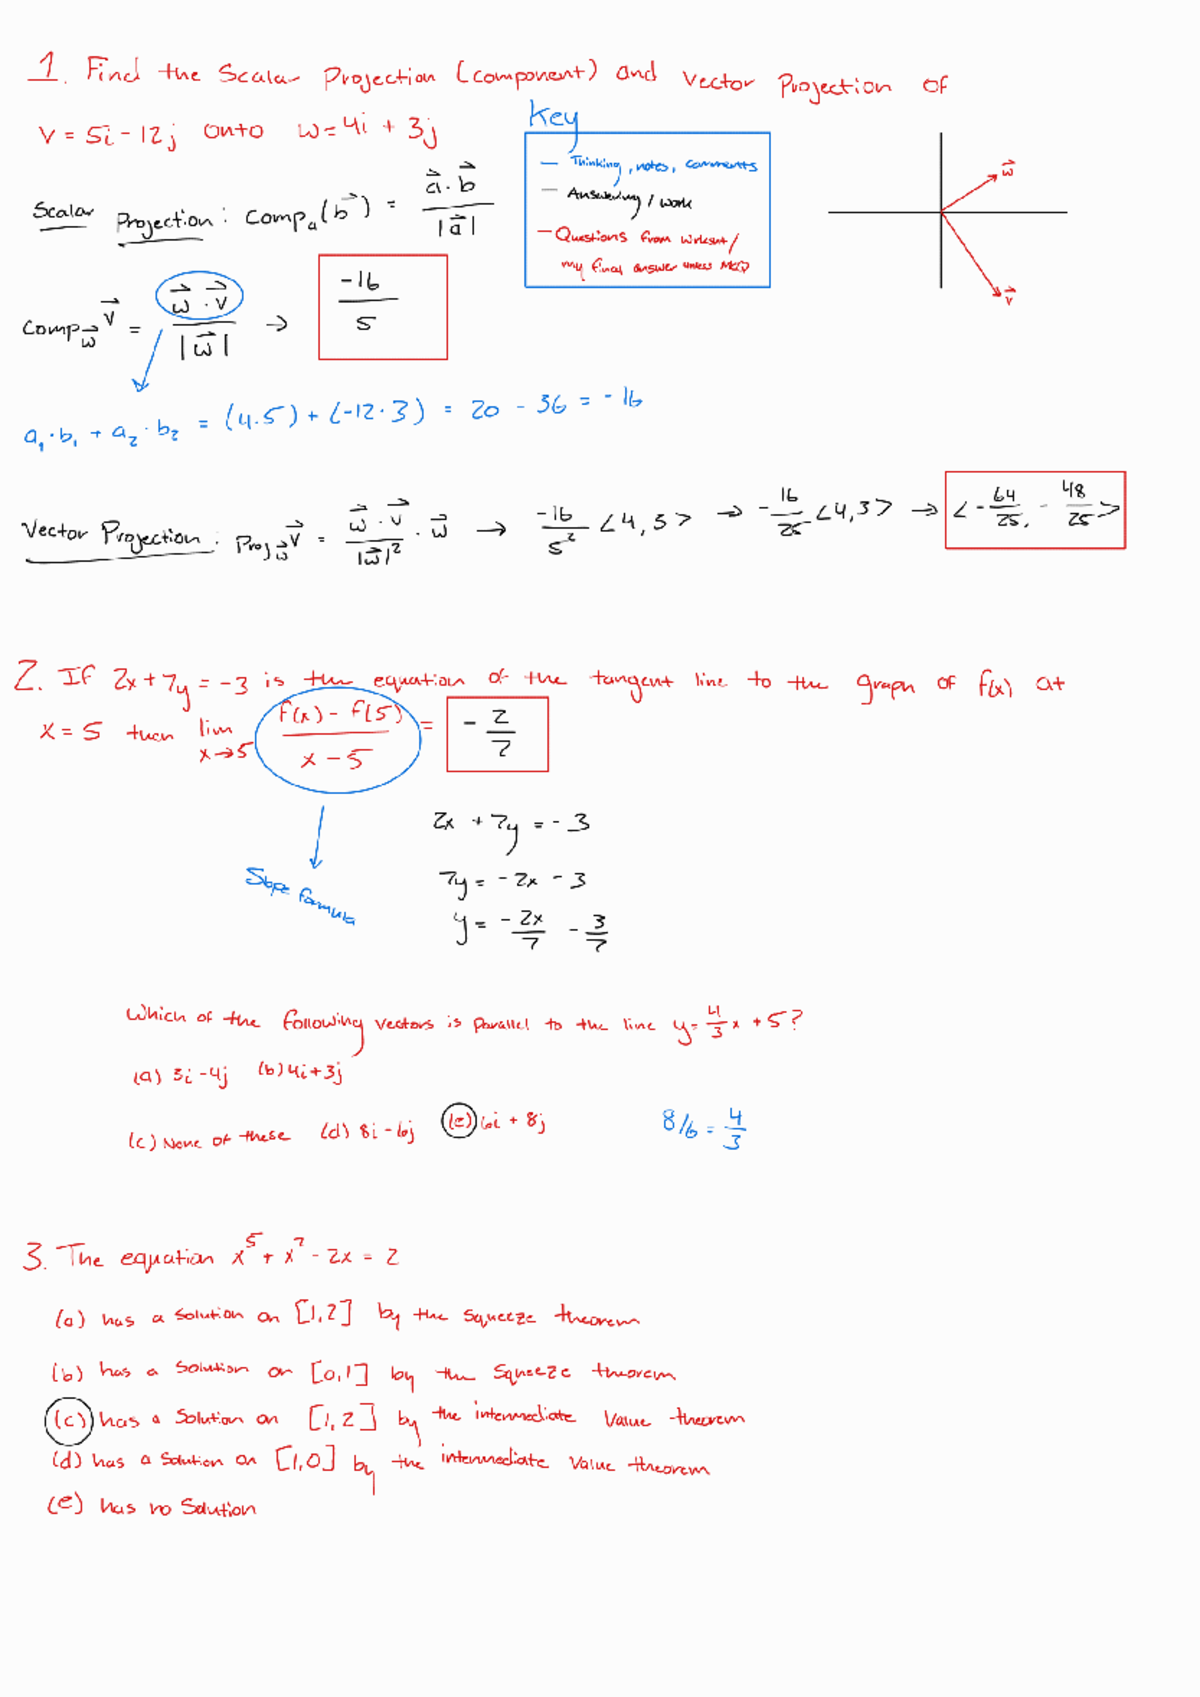 1. Find the Scalar Projection (component) and vector Projection of
v = 5i - 12j onto w = 4i + 3j
Key
— Thinking, notes, comments
— Answering / work
— Questions from worksheet /
my final answer unless MCQ
w⃗
v⃗
Scalar Projection: Comp_a(b⃗) = a⃗ · b⃗ / |a⃗|
Comp_w⃗ v⃗ = w⃗ · v⃗ / |w⃗| → -16 / 5
a₁·b₁ + a₂·b₂ = (4·5) + (-12·3) = 20 - 36 = -16
Vector Projection: Proj_w⃗ v⃗ = w⃗ · v⃗ / |w⃗|² · w⃗ → -16 / 5² <4, 3> → -16/25 <4, 3> → <-64/25, -48/25>
2. If 2x + 7y = -3 is the equation of the tangent line to the graph of f(x) at
x = 5 then lim x→5 f(x) - f(5) / x - 5 = -2/7
2x + 7y = -3
Slope formula
7y = -2x - 3
y = -2x/7 - 3/7
Which of the following vectors is parallel to the line y = 4/3 x + 5?
(a) 3i - 4j (b) 4i + 3j
(c) None of these (d) 8i - 6j (e) 6i + 8j 8/6 = 4/3
3. The equation x⁵ + x² - 2x = 2
(a) has a solution on [1,2] by the squeeze theorem
(b) has a solution on [0,1] by the squeeze theorem
(c) has a solution on [1,2] by the intermediate value theorem
(d) has a solution on [1,0] by the intermediate value theorem
(e) has no solution